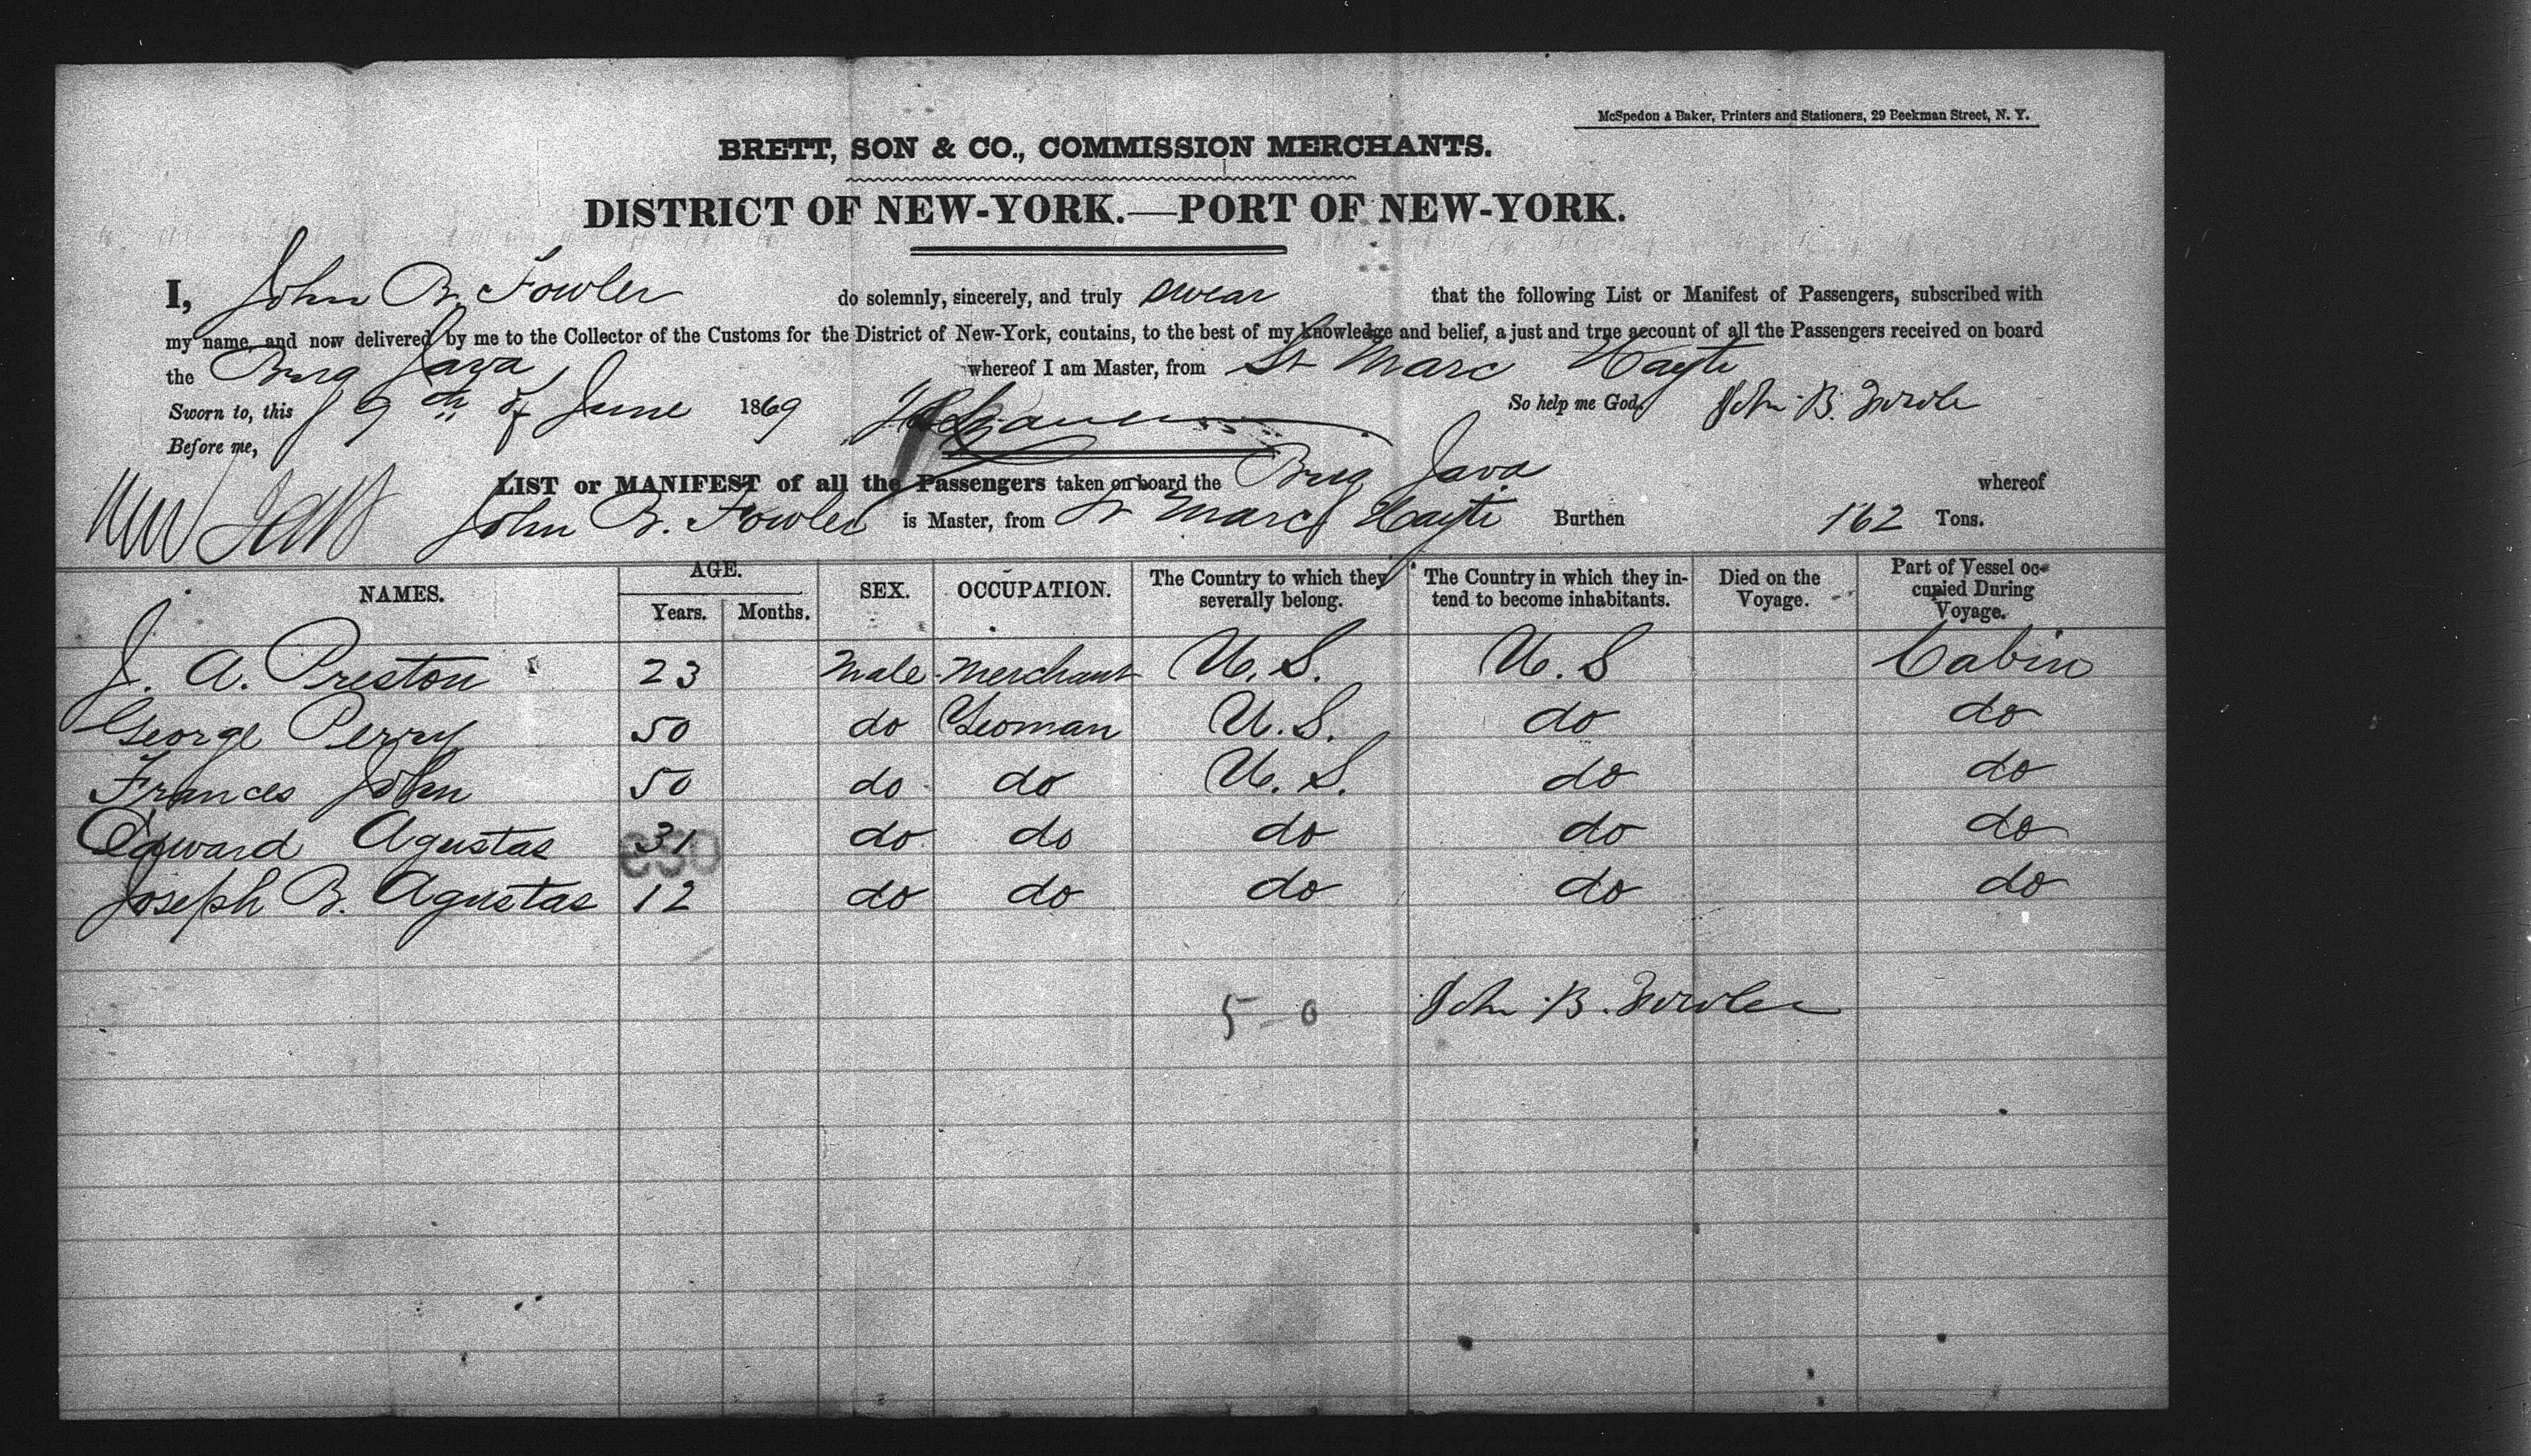 McSpedon & Baker, Printers and Stationers, 29 Beekman Street, N. Y.
BRETT, SON & CO., COMMISSION MERCHANTS.
DISTRICT OF NEW-YORK.—PORT OF NEW-YORK.
I, John B. Fowler do solemnly, sincerely, and truly swear that the following List or Manifest of Passengers, subscribed with
my name, and now delivered by me to the Collector of the Customs for the District of New-York, contains, to the best of my knowledge and belief, a just and true account of all the Passengers received on board
the Brig Java whereof I am Master, from St Marc Hayti
Sworn to, this 9th of June 1869 So help me God, John B. Fowler
Before me,
LIST or MANIFEST of all the Passengers taken on board the Brig Java whereof
John B. Fowler is Master, from St Marc Hayti Burthen 162 Tons.
NAMES. AGE. Years. Months. SEX. OCCUPATION. The Country to which they severally belong. The Country in which they intend to become inhabitants. Died on the Voyage. Part of Vessel occupied During Voyage.
J. A. Preston 23 Male Merchant U.S. U.S Cabin
George Perry 50 do Yeoman U.S. do do
Frances John 50 do do U.S. do do
Edward Agustas 31 do do do do do
Joseph B. Agustas 12 do do do do do
5-0 John B. Fowler